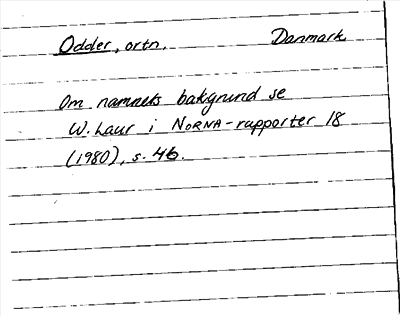 Odder, ortn. Danmark
Om namnets bakgrund se
W. Laur i NORNA-rapporter 18
(1980), s. 46.